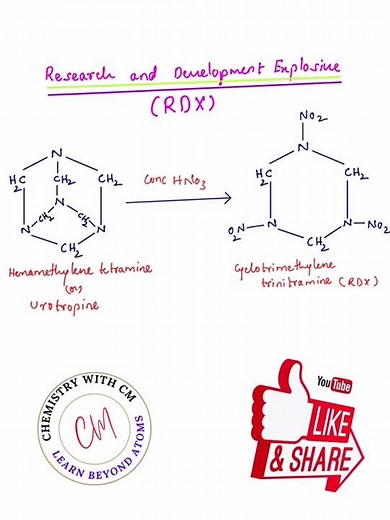 Research and Development Explosive
(RDX)
NO2
N
N
H2C
CH2
CH2
Conc HNO3
H2C
CH2
N
CH2
CH2
N
N
O2N
N
N
NO2
CH2
CH2
Hexamethylene tetramine
(or)
Urotropine
Cyclotrimethylene
trinitramine (RDX)
CHEMISTRY WITH CM
CM
LEARN BEYOND ATOMS
YouTube
LIKE
& SHARE